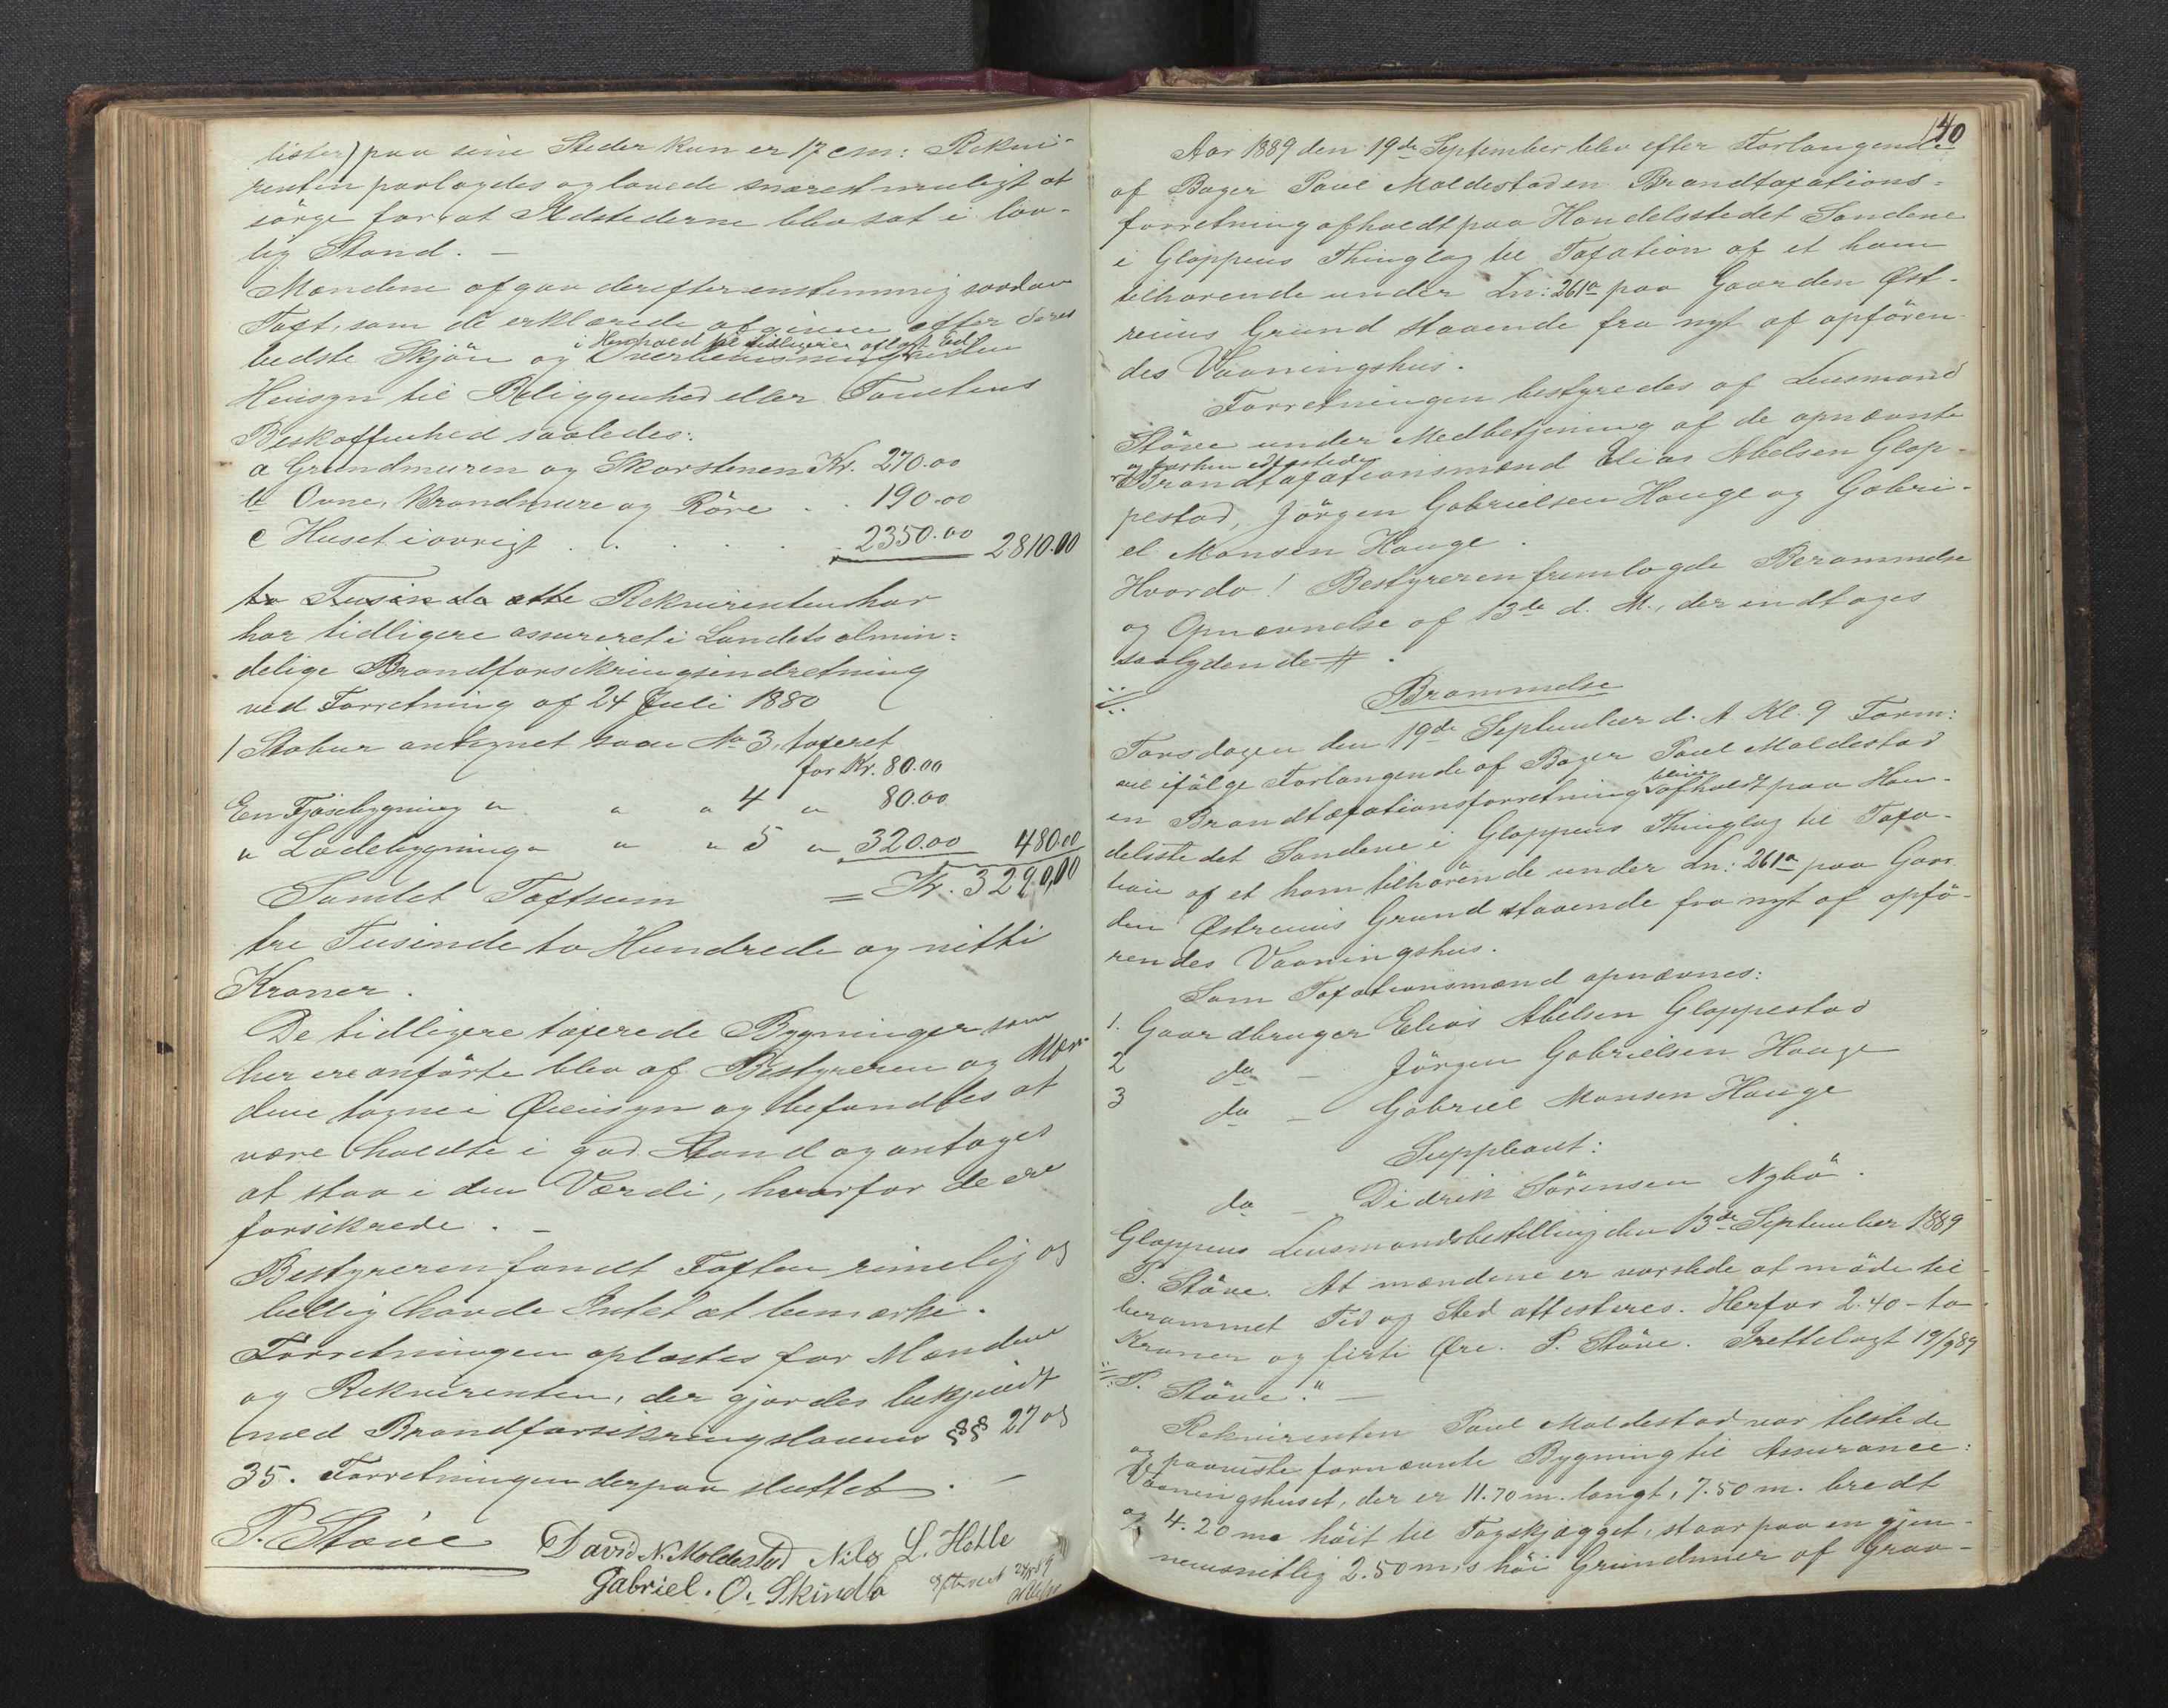 lister) paa sine Steder kun er 17 cm: Rekvi-
renten paalagdes og lovede snarest muligt at
sørge for, at Ildstederne blev sat i lov-
lig Stand. –
Mændene afgav derefter enstemmig saadan
Taxt, som de erklærede at give efter deres
i Henhold til tidligere aflagt Ed
bedste Skjön og Overbevisning uden
Hensyn til Beliggenhed eller Tomtens
Beskaffenhed saaledes:
a Grundmuren og Skorstenen Kr. 270.00
b Ovne, Brandmure og Röre . . 190.00
c Huset iövrigt . . . . . 2350.00 2810.00
to Tusinde otte Rekvirenten har
har tidligere assureret i Landets almin=
delige Brandforsikringsindretning
ved Forretning af 24 Juli 1880
1 Stabur antegnet som No 3, taxeret
for Kr. 80.00
En Fjøsbygning " " " 4 " 80.00
" Ladebygning " " " 5 " 320.00 480.00
Samlet Taxtsum = Kr. 3290,00
tre Tusinde to Hundrede og nitti
Kroner.
De tidligere taxerede Bygninger som
her ere anförte blev af Bestyreren og Mæn-
dene tagne i Öiensyn og befandtes at
være holdte i god Stand og antages
at staa i den Værdi, hvorfor de er
forsikrede. –
Bestyreren fandt Taxten rimelig og
billig havde Intet at bemærke.
Forretningen oplæstes for Mændene
og Rekvirenten, der gjordes bekjendt
med Brandforsikringslovens §§ 27 og
35. Forretningen derpaa sluttet. –
P. Støve David N. Moldestad Nils L. Hetle
Gabriel. O. Skindlo
140
Aar 1889 den 19de September blev efter Forlangende
af Bager Paul Moldestad en Brandtaxations=
forretning afholdt paa Handelsstedet Sandene
i Gloppens Thinglag til Taxation af et ham
tilhørende under Ln: 261a paa Gaarden Øst-
reims Grund staaende fra nyt af opfören-
des Vaaningshus.
Forretningen bestyredes af Lensmand
Støve under Medbetjening af de opnævnte
og forhen edfæstede
Brandtaxationsmænd Elias Abelsen Glop-
pestad, Jörgen Gabrielsen Hauge og Gabri-
el Monsen Hauge.
Hvorda! Bestyreren fremlagde Berammelse
og Opnævnelse af 13de d. M., der indtages
saalydende # .
Brammelse
Torsdagen den 19de September d. A. Kl. 9 Form:
vil ifölge Forlangende af Bager Paul Moldestad
en Brandtaxationsforretning blive afholdt paa Han-
delsstedet Sandene i Gloppens Thinglag til Taxa-
tion af et ham tilhörende under Ln: 261a paa Gaar
den Østreims Grund staaende fra nyt af opfö-
rendes Vaaningshus.
Som Taxationsmænd opnævnes:
1. Gaardbruger Elias Abelsen Gloppestad
2 do – Jörgen Gabrielsen Hauge
3 do – Gabriel Monsen Hauge
Suppleant:
do – Didrik Sörensen Nybö.
Gloppens Lensmandsbestilling den 13de September 1889
P. Støve. At mændene er varslede at møde til
berammet Tid og Sted attesteres. Herfor 2.40 – to
Kroner og firti Øre. P. Støve. Irettelagt 19/9 89
P. Støve." –
Rekvirenten Paul Moldestad var tilstede
og paaviste fornævnte Bygning til Assurance:
Vaaningshuset, der er 11.70 m. langt, 7.50 m. bredt
og 4.20 m høit til Tagskjægget, staar paa en gjen-
nemsnitlig 2.50 m's höi Grundmur af Graa-